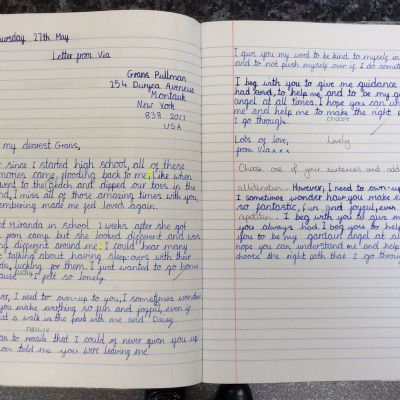 ursday 27th May
Letter from Via
Grans Pullman
254 Duryea Aveneue
Montauk
New York
838 2017
USA
my dearest Grans,
since I started high school, all of these
mories came flooding back to me; like when
went to the Beach and dipped our toes in the
nd, I miss all of those amazing times with you,
embering made me feel loved again.
Miranda in school 2 weeks after she got
you camp but she looked different and was
ng different around me; I could hear many
e talking about having sleep-overs with their
nds, lucking for them. I just wanted to go home
lucky
ause I felt so lonely.
er, I need to own-up to you, I sometimes wonder
you make everthing so fun and joyful, even if
st a walk in the park with me and Daisy.
realise
an to reasile that I could of never given you up
you told me you were leaving me.
I give you my word to be kind to myself in
and to not push myself over if I do somet
I beg with you to give me guidance
had and, to help me and to be my g
angel at all times. I hope you can un
me and help me to make the right
choose
I go through.
Lots of love, Lovely
from Via x x x
Choose one of your sentences and add
alliteration - However, I need to own-up
I sometimes wonder how you make e
so fantastic, fun and joyful, even
repetition - I beg with you to give m
you always had. I beg you to help
you to be my gardain angel at al
hope you can understand me and help
choose the right path that I go throug